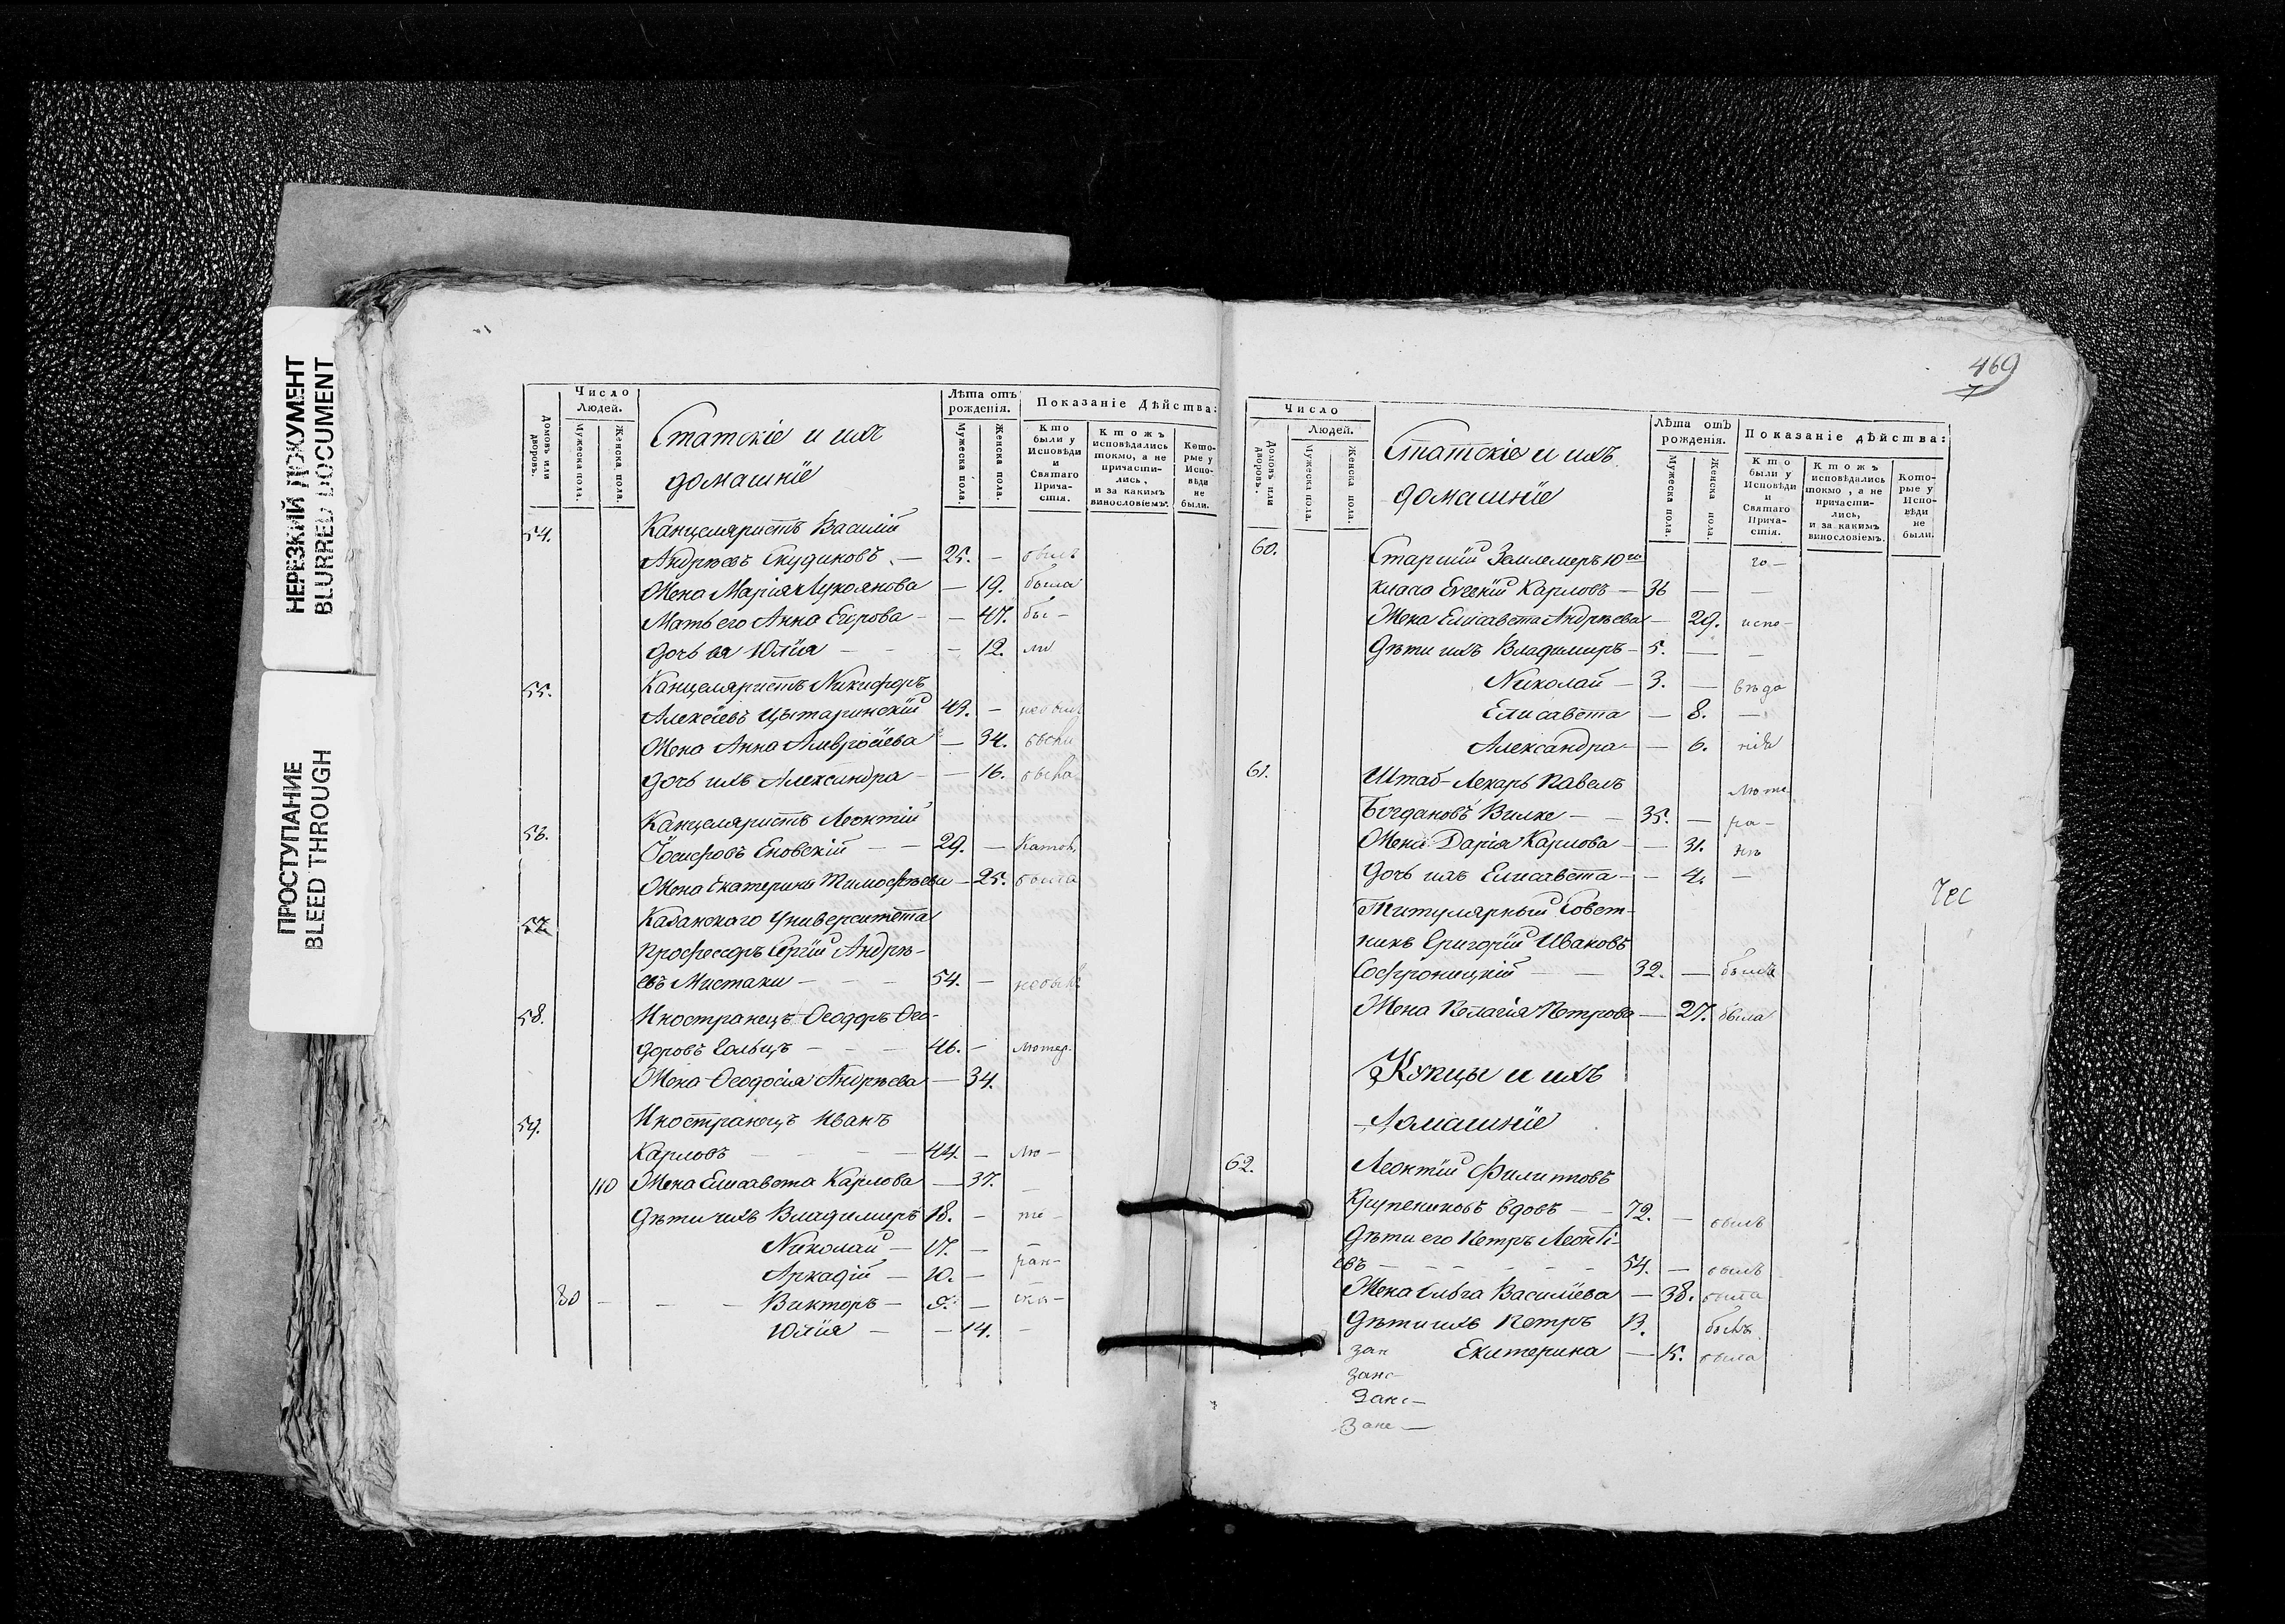 НЕРЕЗКИЙ ДОКУМЕНТ
BLURRED DOCUMENT
ПРОСТУПАНИЕ
BLEED THROUGH
Число
Людей.
Домовъ или дворовъ.
Мужеска пола.
Женска пола.
Статскіе и ихъ
домашніе
Лѣта отъ рожденія.
Мужеска пола.
Женска пола.
Показаніе Дѣйства:
Кто были у Исповѣди и Святаго Причастія.
Ктожъ исповѣдались токмо, а не причастились, и за какимъ винословіемъ.
Которые у Исповѣди не были.
54. Канцеляристъ Василій
Андреевъ Скудиковъ — 25. — былъ
Жена Марія Лукоянова — 19. была
Мать его Анна Егорова — 47. бы-
Дочь ея Юлія — 12. ли
55. Канцеляристъ Никифоръ
Алексіевъ 43. — небылъ
Жена Анна Амвросіева — 34. была
Дочь ихъ Александра — 16. была
56. Канцеляристъ Леонтій
Іосифовъ Еновскій — 29. — Катол.
Жена Екатерина Тимофѣева — 25. была
57. Казанскаго Университета
Профессоръ Сергій Андрѣ-
евъ Мистаки — 54. — небылъ
58. Иностранецъ Ѳеодоръ Ѳео-
доровъ Гольцъ — 46. — лютер.
Жена Ѳеодосія Андрѣева — 34.
59. Иностранецъ Иванъ
Карловъ — 44. — лю-
110 Жена Елисавета Карлова — 37. —
Дѣти ихъ Владимиръ 18. — те-
Николай — 17. —
Аркадій — 10. — ран-
80 — Викторъ — 9. —
Юлія — 14. —
469
7
Число
Людей.
Домовъ или дворовъ.
Мужеска пола.
Женска пола.
Статскіе и ихъ
домашніе
Лѣта отъ рожденія.
Мужеска пола.
Женска пола.
Показаніе дѣйства:
Кто были у Исповѣди и Святаго Причастія.
Ктожъ исповѣдались токмо, а не причастились, и за какимъ винословіемъ.
Которые у Исповѣди не были.
60. Старшій Землемеръ 10го го-
класа Евгеній Карловъ — 36 — —
Жена Елисавета Андрѣева — 29. испо-
Дѣти ихъ Владимиръ — 5. — —
Николай — 3. — вѣда
Елисавета — 8. —
Александра — 6. нія
61. Штаб-Лекарь Павелъ люте
Богдановъ Вилке — 35. — ра-
Жена Дарія Карлова — 31. нѣ
Дочь ихъ Елисавета — 4. —
Титулярный Совет-
никъ Григорій Ивановъ
Софроницкій — 32. — былъ
Жена Пелагія Петрова — 27. была
Купцы и ихъ
Домашніе
62. Леонтій Филипповъ
Крупениковъ вдовъ — 72. — былъ
Дѣти его Петръ Леонті-
евъ — 54. — былъ
Жена Ольга Василіева — 38. была
Дѣти ихъ Петръ 13. былъ
Екатерина — 15. была
зан
Зане-
Зане-
Зане-